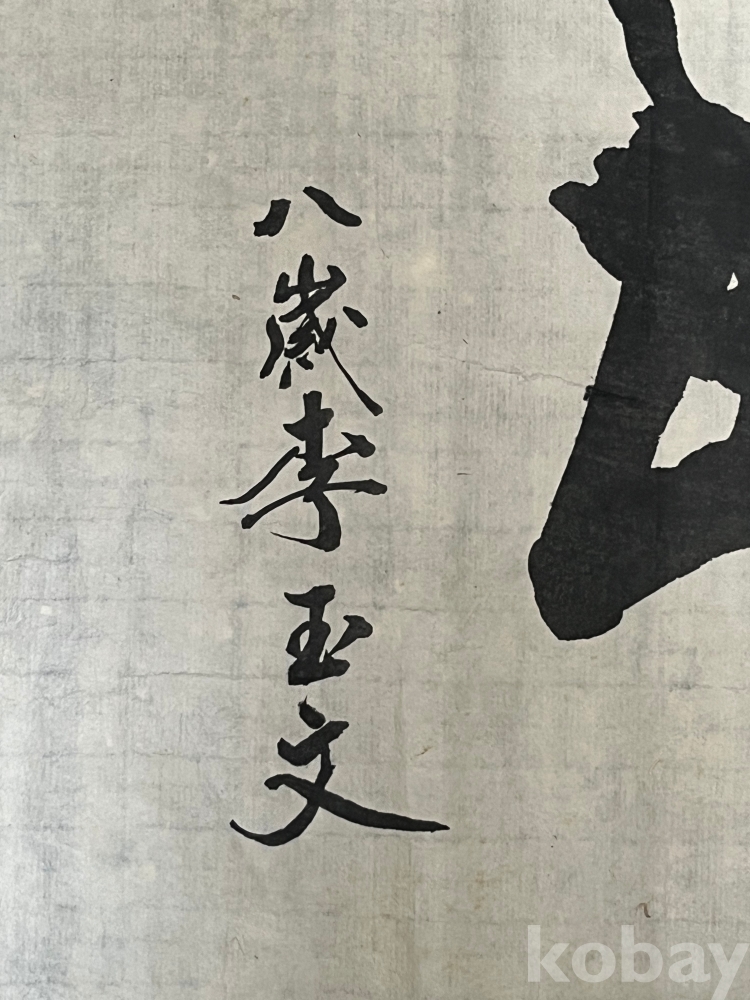 八歲李玉文
kobay